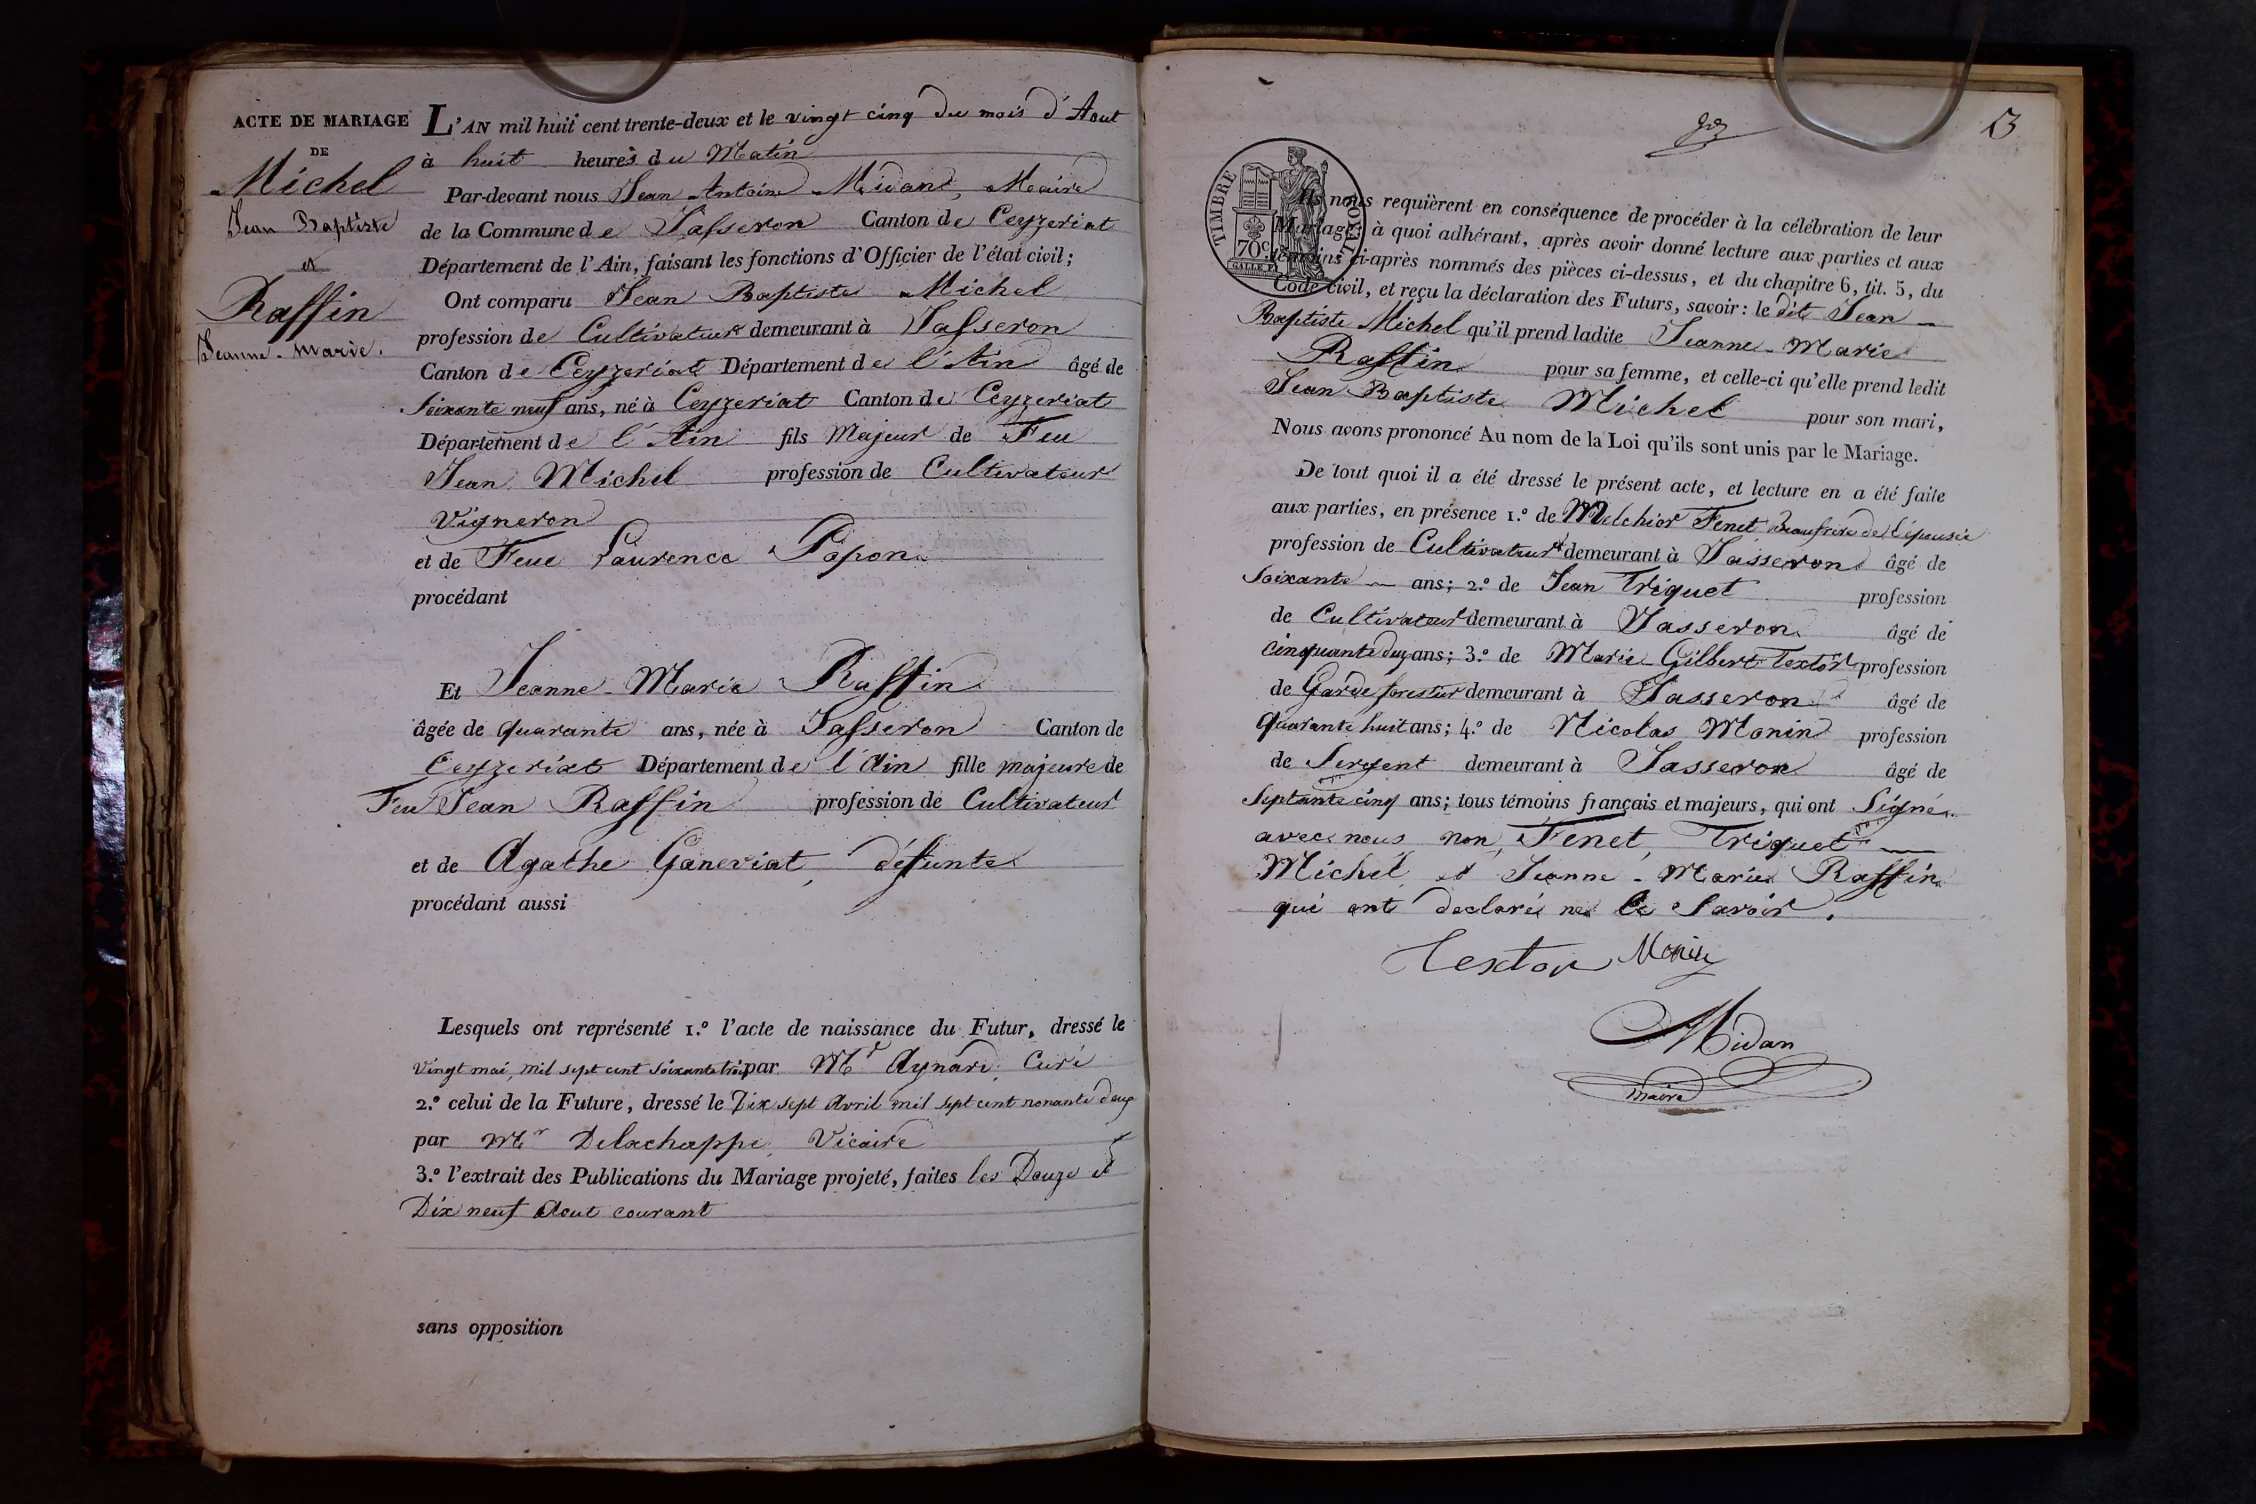 ACTE DE MARIAGE
DE
Michel
Jean Baptiste
et
Raffin
Jeanne-Marie.
L'AN mil huit cent trente-deux et le vingt cinq du mois d'Aout
à huit heures du Matin
Par-devant nous Jean Antoine Midant, Maire
de la Commune de Jasseron Canton de Ceyzeriat
Département de l'Ain, faisant les fonctions d'Officier de l'état civil;
Ont comparu Jean Baptiste Michel
profession de Cultivateur demeurant à Jasseron
Canton de Ceyzeriat Département de l'Ain âgé de
Soixante neuf ans, né à Ceyzeriat Canton de Ceyzeriat
Département de l'Ain fils Majeur de Feu
Jean Michel profession de Cultivateur
Vigneron
et de Feue Laurence Popon
procédant
Et Jeanne-Marie Raffin
âgée de quarante ans, née à Jasseron Canton de
Ceyzeriat Département de l'Ain fille majeure de
Feu Jean Raffin profession de Cultivateur
et de Agathe Ganeviat, défunte
procédant aussi
Lesquels ont représenté 1.º l'acte de naissance du Futur, dressé le
vingt mai, mil sept cent soixante trois par Mr Aynard, Curé
2.º celui de la Future, dressé le Dix sept Avril mil sept cent nonante deux
par Mr Delachappe, Vicaire
3.º l'extrait des Publications du Mariage projeté, faites les Douze et
Dix neuf Aout courant
sans opposition
13
TIMBRE ROYAL
70c
Ils nous requièrent en conséquence de procéder à la célébration de leur
Mariage; à quoi adhérant, après avoir donné lecture aux parties et aux
témoins ci-après nommés des pièces ci-dessus, et du chapitre 6, tit. 5, du
Code civil, et reçu la déclaration des Futurs, savoir: le dit Jean
Baptiste Michel qu'il prend ladite Jeanne-Marie
Raffin pour sa femme, et celle-ci qu'elle prend ledit
Jean Baptiste Michel pour son mari,
Nous avons prononcé Au nom de la Loi qu'ils sont unis par le Mariage.
De tout quoi il a été dressé le présent acte, et lecture en a été faite
aux parties, en présence 1.º de Melchior Fenet Beaufrère de l'épousée
profession de Cultivateur demeurant à Jasseron âgé de
soixante ans; 2.º de Jean Triquet profession
de Cultivateur demeurant à Jasseron âgé de
cinquante deux ans; 3.º de Marie-Gilbert Textor profession
de Garde forestier demeurant à Jasseron âgé de
quarante huit ans; 4.º de Nicolas Monin profession
de Sergent demeurant à Jasseron âgé de
septante cinq ans; tous témoins français et majeurs, qui ont Signé
avec nous non, Fenet, Triquet
Michel et Jeanne-Marie Raffin
qui ont declaré ne le Savoir.
Textor Monin
Midan
maire